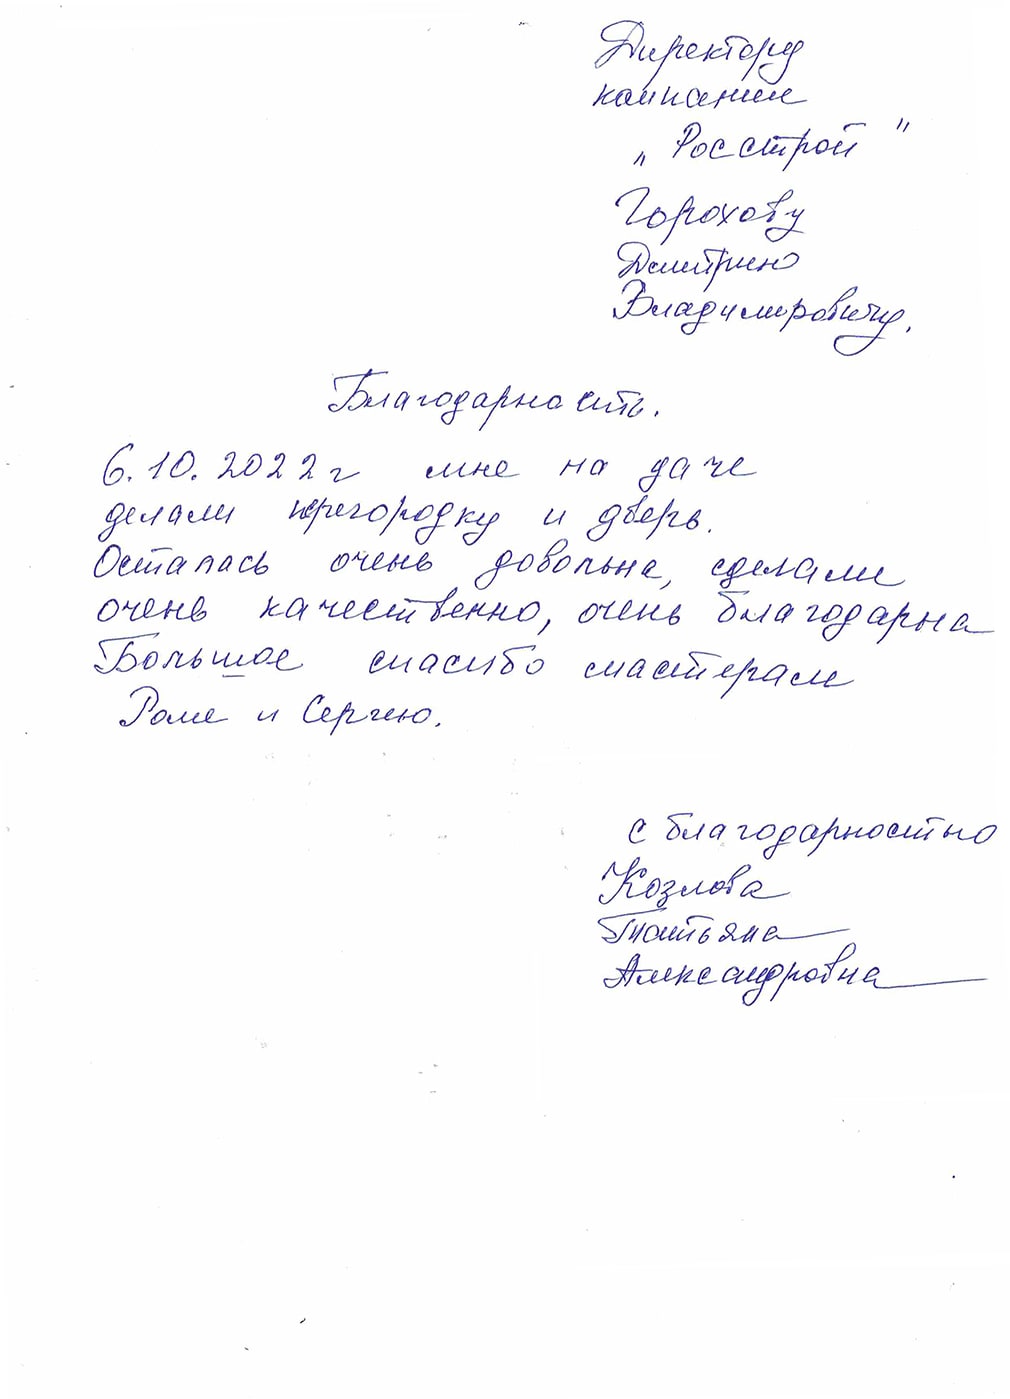 Директору
компании
„Росстрой"
Горохову
Дмитрию
Владимировичу.
Благодарность.
6.10.2022г мне на даче
делали перегородку и дверь.
Осталась очень довольна, сделали
очень качественно, очень благодарна
Большое спасибо мастерам
Роме и Сергею.
с благодарностью
Козлова
Татьяна
Александровна